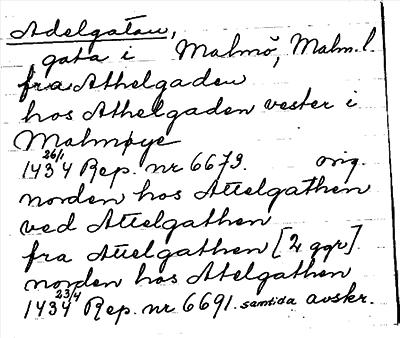 Adelgatan,
gata i Malmö, Malm. l.
fra Athelgaden
hos Athelgaden vester i
Malmøye
26/1 1434 Rep. nr 6679. orig.
norden hos Attelgathen
ved Attelgathen
fra Attelgathen [2 ggr].
norden hos Atelgathen
23/4 1434 Rep. nr 6691. samtida avskr.